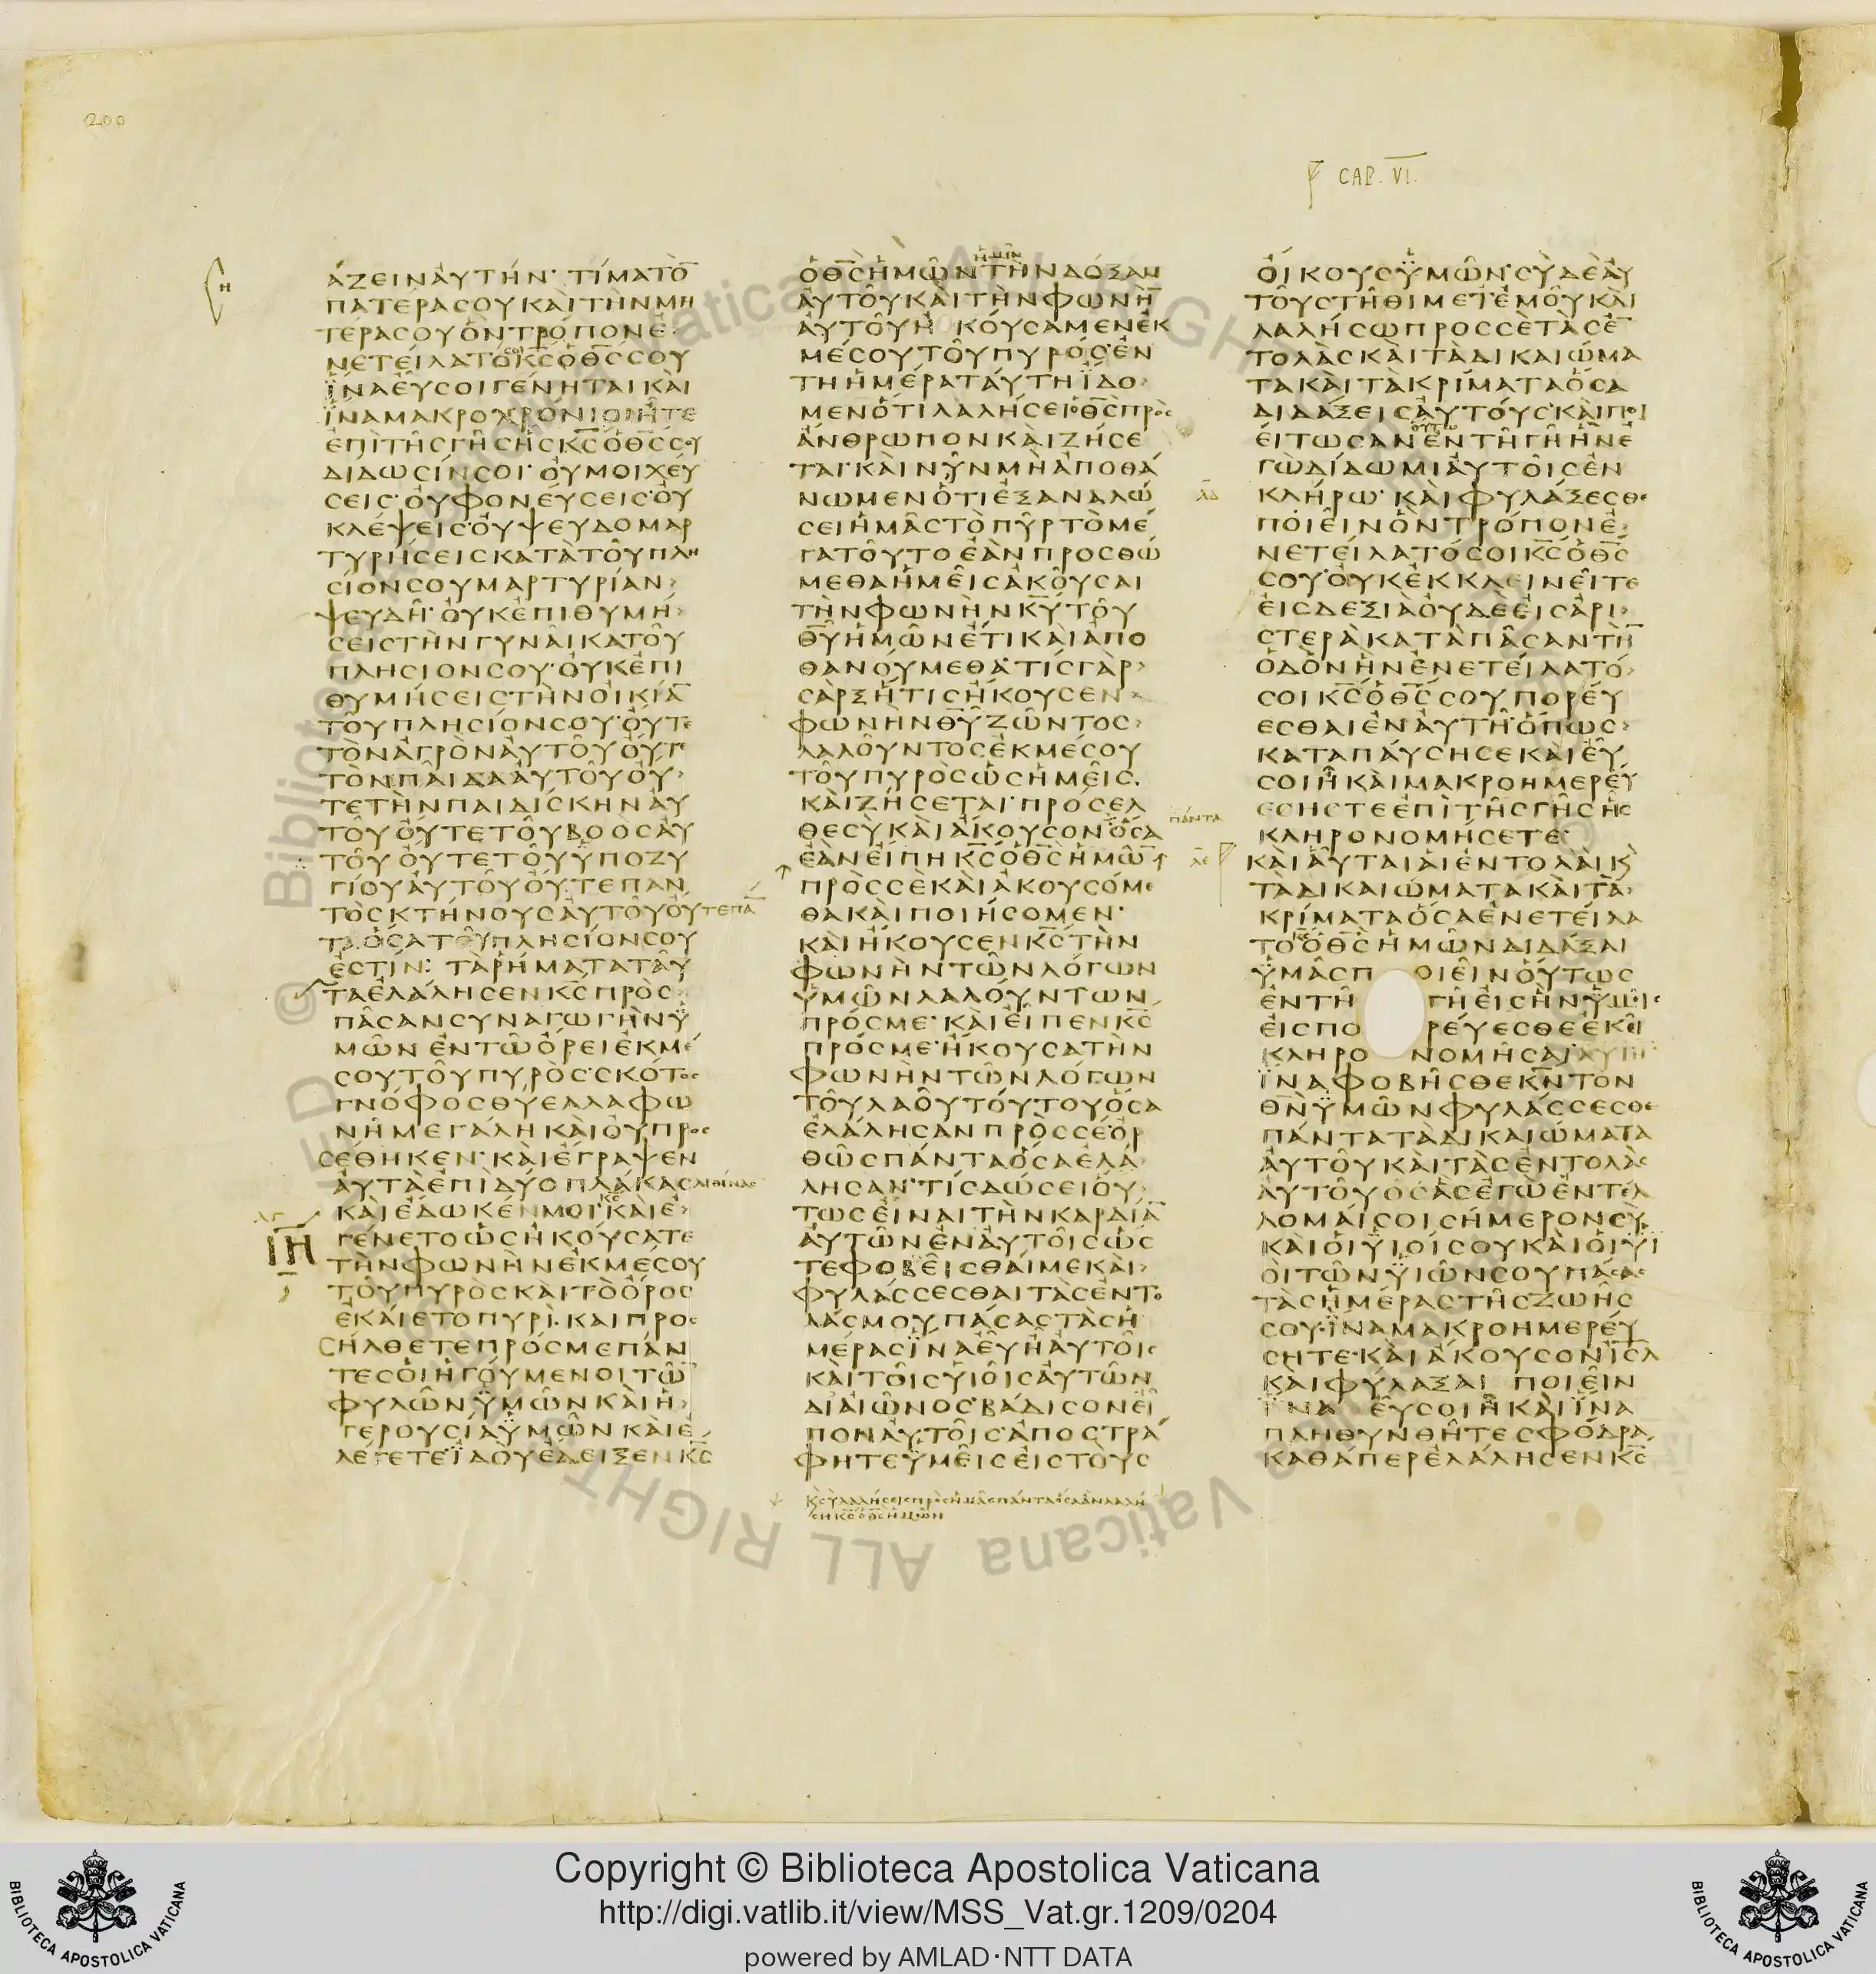 200
CAP. VI.
ἁΖΕΙΝΑΥΤΗΝ· ΤΙΜΑΤΟ̅
ΠΑΤΕΡΑCΟΥΚΑΙΤΗΝΜΗ
ΤΕΡΑCΟΥΟΝΤΡΟΠΟΝΕ
ΝΕΤΕΙΛΑΤΟΚ̅C̅ΟΘ̅C̅CΟΥ
ΙΝΑΕΥCΟΙΓΕΝΗΤΑΙΚΑΙ
ΙΝΑΜΑΚΡΟΧΡΟΝΙΟΙΗΤΕ
ΕΠΙΤΗCΓΗCΗCΚ̅C̅ΟΘ̅C̅CΟΥ
ΔΙΔΩCΙΝCΟΙ· ΟΥΜΟΙΧΕΥ
CΕΙC· ΟΥΦΟΝΕΥCΕΙC· ΟΥ
ΚΛΕΨΕΙC· ΟΥΨΕΥΔΟΜΑΡ
ΤΥΡΗCΕΙCΚΑΤΑΤΟΥΠΛΗ
CΙΟΝCΟΥΜΑΡΤΥΡΙΑΝ
ΨΕΥΔΗ· ΟΥΚΕΠΙΘΥΜΗ
CΕΙCΤΗΝΓΥΝΑΙΚΑΤΟΥ
ΠΛΗCΙΟΝCΟΥ· ΟΥΚΕΠΙ
ΘΥΜΗCΕΙCΤΗΝΟΙΚΙΑ̅
ΤΟΥΠΛΗCΙΟΝCΟΥ· ΟΥΤΕ
ΤΟΝΑΓΡΟΝΑΥΤΟΥΟΥΤΕ
ΤΟΝΠΑΙΔΑΑΥΤΟΥΟΥ
ΤΕΤΗΝΠΑΙΔΙCΚΗΝΑΥ
ΤΟΥΟΥΤΕΤΟΥΒΟΟCΑΥ
ΤΟΥΟΥΤΕΤΟΥΫΠΟΖΥ
ΓΙΟΥΑΥΤΟΥΟΥΤΕΠΑΝ
ΤΟCΚΤΗΝΟΥCΑΥΤΟΥΟΥΤΕΠΑ̅
ΤΑΟCΑΤΟΥΠΛΗCΙΟΝCΟΥ
ΕCΤΙΝ: ΤΑΡΗΜΑΤΑΤΑΥ
ΤΑΕΛΑΛΗCΕΝΚ̅C̅ΠΡΟC
ΠΑCΑΝCΥΝΑΓΩΓΗΝΫ
ΜΩΝΕΝΤΩΟΡΕΙΕΚΜΕ
CΟΥΤΟΥΠΥΡΟC· CΚΟΤΟC
ΓΝΟΦΟCΘΥΕΛΛΑΦΩ
ΝΗΜΕΓΑΛΗΚΑΙΟΥΠΡΟC
CΕΘΗΚΕΝ· ΚΑΙΕΓΡΑΨΕΝ
ΑΥΤΑΕΠΙΔΥΟΠΛΑΚΑCΛΙΘΙΝΑC
ΚΑΙΕΔΩΚΕΝΜΟΙ· ΚΑΙΕ
ΙΗ ΓΕΝΕΤΟΩCΗΚΟΥCΑΤΕ
ΤΗΝΦΩΝΗΝΕΚΜΕCΟΥ
ΤΟΥΠΥΡΟCΚΑΙΤΟΟΡΟC
ΕΚΑΙΕΤΟΠΥΡΙ· ΚΑΙΠΡΟ
CΗΛΘΕΤΕΠΡΟCΜΕΠΑΝ
ΤΕCΟΙΗΓΟΥΜΕΝΟΙΤΩ̅
ΦΥΛΩΝΫΜΩΝΚΑΙΗ
ΓΕΡΟΥCΙΑΫΜΩΝΚΑΙΕ
ΛΕΓΕΤΕΪΔΟΥΕΔΕΙΞΕΝΚ̅C̅
ΟΘ̅C̅ΗΜΩΝΗΜΙΝΤΗΝΔΟΞΑΝ
ΑΥΤΟΥΚΑΙΤΗΝΦΩΝΗ̅
ΑΥΤΟΥΗΚΟΥCΑΜΕΝΕΚ
ΜΕCΟΥΤΟΥΠΥΡΟC· ΕΝ
ΤΗΗΜΕΡΑΤΑΥΤΗΪΔΟ
ΜΕΝΟΤΙΛΑΛΗCΕΙΟΘ̅C̅ΠΡΟC
ΑΝΘΡΩΠΟΝΚΑΙΖΗCΕ
ΤΑΙ· ΚΑΙΝΥΝΜΗΑΠΟΘΑ
ΝΩΜΕΝΟΤΙΕΞΑΝΑΛΩ
CΕΙΗΜΑCΤΟΠΥΡΤΟΜΕ
ΓΑΤΟΥΤΟΕΑΝΠΡΟCΘΩ
ΜΕΘΑΗΜΕΙCΑΚΟΥCΑΙ
ΤΗΝΦΩΝΗΝΚ̅Υ̅ΤΟΥ
Θ̅Υ̅ΗΜΩΝΕΤΙΚΑΙΑΠΟ
ΘΑΝΟΥΜΕΘΑ· ΤΙCΓΑΡ
CΑΡΞΗΤΙCΗΚΟΥCΕΝ
ΦΩΝΗΝΘ̅Υ̅ΖΩΝΤΟC
ΛΑΛΟΥΝΤΟCΕΚΜΕCΟΥ
ΤΟΥΠΥΡΟCΩCΗΜΕΙC
ΚΑΙΖΗCΕΤΑΙ· ΠΡΟCΕΛ
ΘΕCΥΚΑΙΑΚΟΥCΟΝΟCΑ
ΠΑΝΤΑ
ΕΑΝΕΙΠΗΚ̅C̅ΟΘ̅C̅ΗΜΩ̅
ΠΡΟCCΕΚΑΙΑΚΟΥCΟΜΕ
ΘΑΚΑΙΠΟΙΗCΟΜΕΝ·
ΚΑΙΗΚΟΥCΕΝΚ̅C̅ΤΗΝ
ΦΩΝΗΝΤΩΝΛΟΓΩΝ
ΫΜΩΝΛΑΛΟΥΝΤΩΝ
ΠΡΟCΜΕ· ΚΑΙΕΙΠΕΝΚ̅C̅
ΠΡΟCΜΕ· ΗΚΟΥCΑΤΗΝ
ΦΩΝΗΝΤΩΝΛΟΓΩΝ
ΤΟΥΛΑΟΥΤΟΥΤΟΥΟCΑ
ΕΛΑΛΗCΑΝΠΡΟCCΕ· ΟΡ
ΘΩCΠΑΝΤΑΟCΑΕΛΑ
ΛΗCΑΝ· ΤΙCΔΩCΕΙΟΥ
ΤΩCΕΙΝΑΙΤΗΝΚΑΡΔΙΑ̅
ΑΥΤΩΝΕΝΑΥΤΟΙCΩC
ΤΕΦΟΒΕΙCΘΑΙΜΕΚΑΙ
ΦΥΛΑCCΕCΘΑΙΤΑCΕΝΤΟ
ΛΑCΜΟΥΠΑCΑCΤΑCΗ
ΜΕΡΑCΪΝΑΕΥΗΑΥΤΟΙC
ΚΑΙΤΟΙCΥΙΟΙCΑΥΤΩΝ
ΔΙΑΙΩΝΟC· ΒΑΔΙCΟΝΕΙ
ΠΟΝΑΥΤΟΙC· ΑΠΟCΤΡΑ
ΦΗΤΕΫΜΕΙCΕΙCΤΟΥC
ΚCΥΛΑΛΗCΕΙCΠΡΟCΗΜΑCΠΑΝΤΑΟCΑΑΝΛΑΛΗ
CΗΚ̅C̅ΟΘ̅C̅ΗΜΩΝ
ΟΙΚΟΥCΫΜΩΝ· CΥΔΕΑΥ
ΤΟΥCΤΗΘΙΜΕΤΕΜΟΥΚΑΙ
ΛΑΛΗCΩΠΡΟCCΕΤΑCΕ̅
ΤΟΛΑCΚΑΙΤΑΔΙΚΑΙΩΜΑ
ΤΑΚΑΙΤΑΚΡΙΜΑΤΑΟCΑ
ΔΙΔΑΞΕΙCΑΥΤΟΥC· ΚΑΙΠΟΙ
ΕΙΤΩCΑΝΟΥΤΩΕΝΤΗΓΗΗΝΕ
ΓΩΔΙΔΩΜΙΑΥΤΟΙCΕΝ
ΛΔ ΚΛΗΡΩ· ΚΑΙΦΥΛΑΞΕCΘΕ
ΠΟΙΕΙΝΟΝΤΡΟΠΟΝΕ
ΝΕΤΕΙΛΑΤΟCΟΙΚ̅C̅ΟΘ̅C̅
CΟΥ· ΟΥΚΕΚΚΛΕΙΝΕΙΤΕ
ΕΙCΔΕΞΙΑΟΥΔΕΕΙCΑΡΙ
CΤΕΡΑΚΑΤΑΠΑCΑΝΤΗ̅
ΟΔΟΝΗΝΕΝΕΤΕΙΛΑΤΟ
CΟΙΚ̅C̅ΟΘ̅C̅CΟΥΠΟΡΕΥ
ΕCΘΑΙΕΝΑΥΤΗ· ΟΠΩC
ΚΑΤΑΠΑΥCΗCΕΚΑΙΕΥ
CΟΙΗΚΑΙΜΑΚΡΟΗΜΕΡΕΥ
CΗΤΕΕΠΙΤΗCΓΗCΗC
ΚΛΗΡΟΝΟΜΗCΕΤΕ·
ΛΕ ΚΑΙΑΥΤΑΙΑΙΕΝΤΟΛΑΙΚ
ΤΑΔΙΚΑΙΩΜΑΤΑΚΑΙΤΑ
ΚΡΙΜΑΤΑΟCΑΕΝΕΤΕΙΛΑ
ΤΟΚ̅C̅ΟΘ̅C̅ΗΜΩΝΔΙΔΑΞΑΙ
ΫΜΑCΠΟΙΕΙΝΟΥΤΩC
ΕΝΤΗΓΗΕΙCΗΝΫΜΕΙC
ΕΙCΠΟΡΕΥΕCΘΕΕΚΕΙ
ΚΛΗΡΟΝΟΜΗCΑΙ
ΪΝΑΦΟΒΗCΘΕΚ̅Ν̅ΤΟΝ
Θ̅Ν̅ΫΜΩΝΦΥΛΑCCΕCΘΕ
ΠΑΝΤΑΤΑΔΙΚΑΙΩΜΑΤΑ
ΑΥΤΟΥΚΑΙΤΑCΕΝΤΟΛΑC
ΑΥΤΟΥΟCΑCΕΓΩΕΝΤΕΛ
ΛΟΜΑΙCΟΙCΗΜΕΡΟΝCΥ
ΚΑΙΟΙΫΙΟΙCΟΥΚΑΙΟΙΫΙ
ΟΙΤΩΝΫΙΩΝCΟΥΠΑCΑC
ΤΑCΗΜΕΡΑCΤΗCΖΩΗC
CΟΥ· ΪΝΑΜΑΚΡΟΗΜΕΡΕΥ
CΗΤΕ· ΚΑΙΑΚΟΥCΟΝΙ̅C̅Λ̅
ΚΑΙΦΥΛΑΞΑΙΠΟΙΕΙΝ
ΪΝΑΕΥCΟΙΗΚΑΙΪΝΑ
ΠΛΗΘΥΝΘΗΤΕCΦΟΔΡΑ
ΚΑΘΑΠΕΡΕΛΑΛΗCΕΝΚ̅C̅
Copyright © Biblioteca Apostolica Vaticana
http://digi.vatlib.it/view/MSS_Vat.gr.1209/0204
powered by AMLAD·NTT DATA
BIBLIOTECA APOSTOLICA VATICANA
BIBLIOTECA APOSTOLICA VATICANA